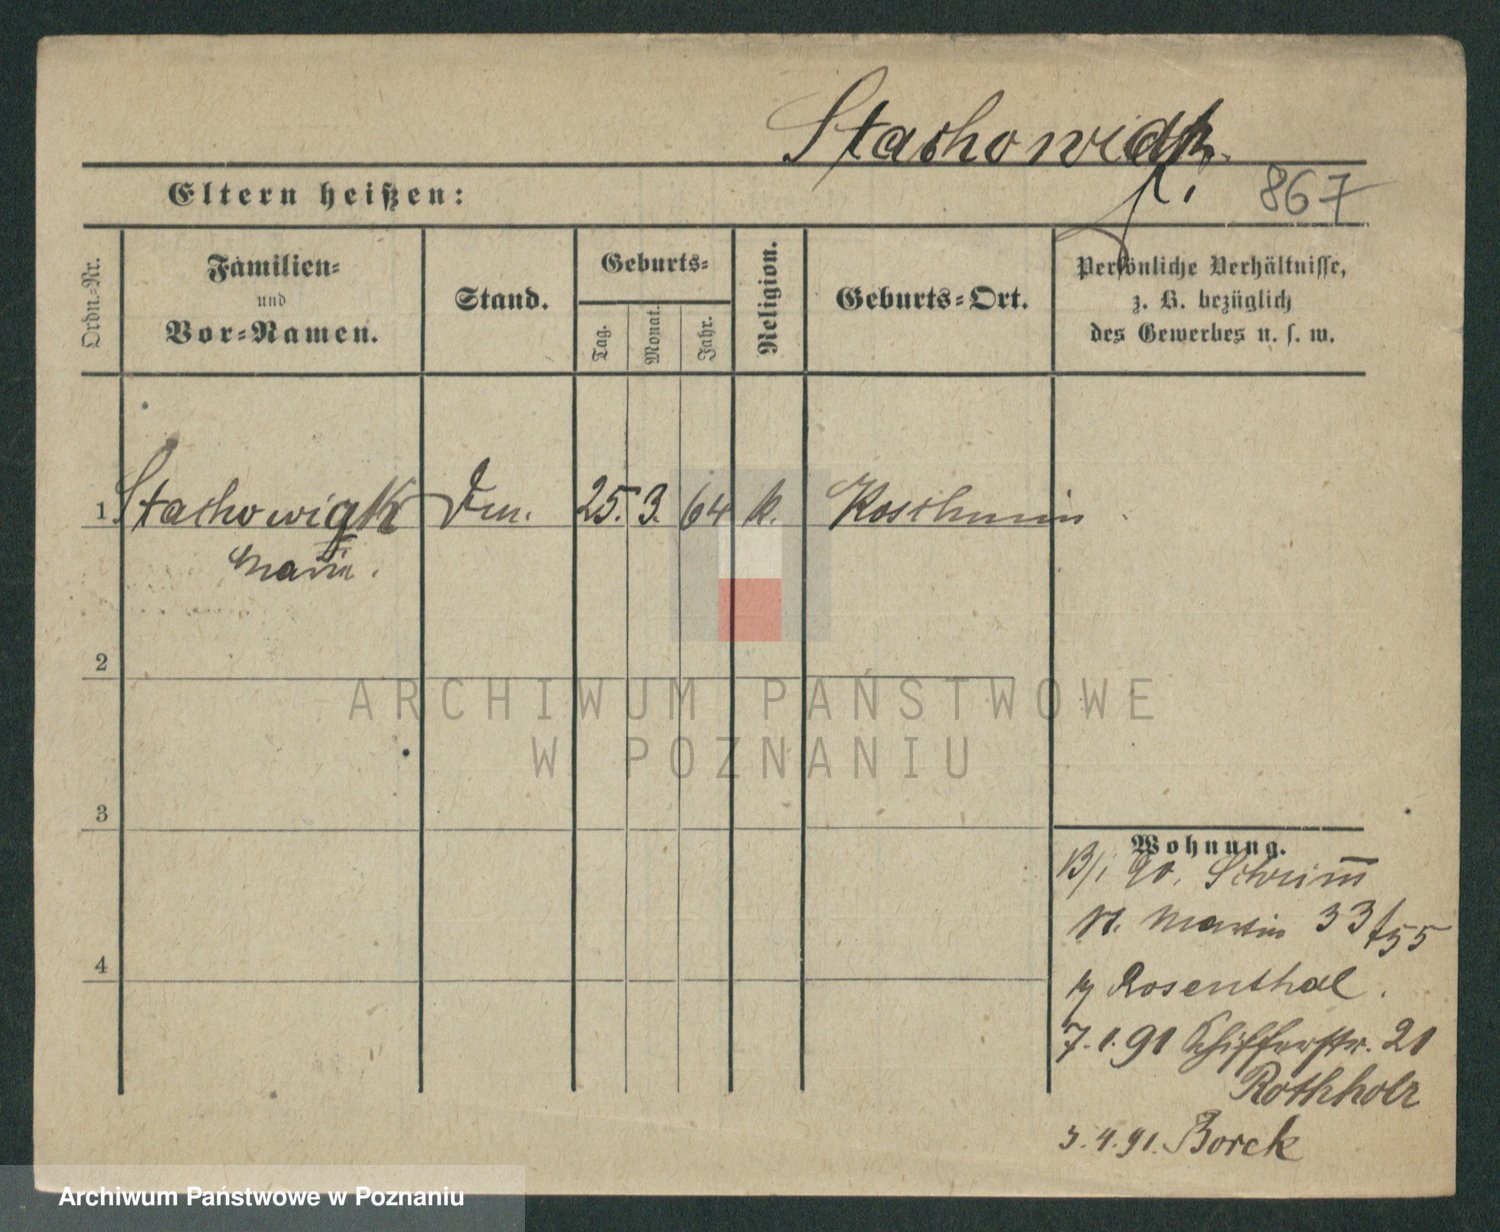 Stachowigk
867
Eltern heißen:
Ordn.-Nr.
Familien-
und
Vor-Namen.
Stand.
Geburts-
Tag.
Monat.
Jahr.
Religion.
Geburts-Ort.
Persönliche Verhältnisse,
z. B. bezüglich
des Gewerbes u. s. w.
1 Stachowigk 25. 3. 64 k. Koschmin
Marie.
2
3
4
ARCHIWUM PAŃSTWOWE
W POZNANIU
Wohnung.
90. Schrimm
St. Martin 33/55
Rosenthal.
7.1.91 Schifferstr. 21
Rothholz
3.4.91. Borek
Archiwum Państwowe w Poznaniu